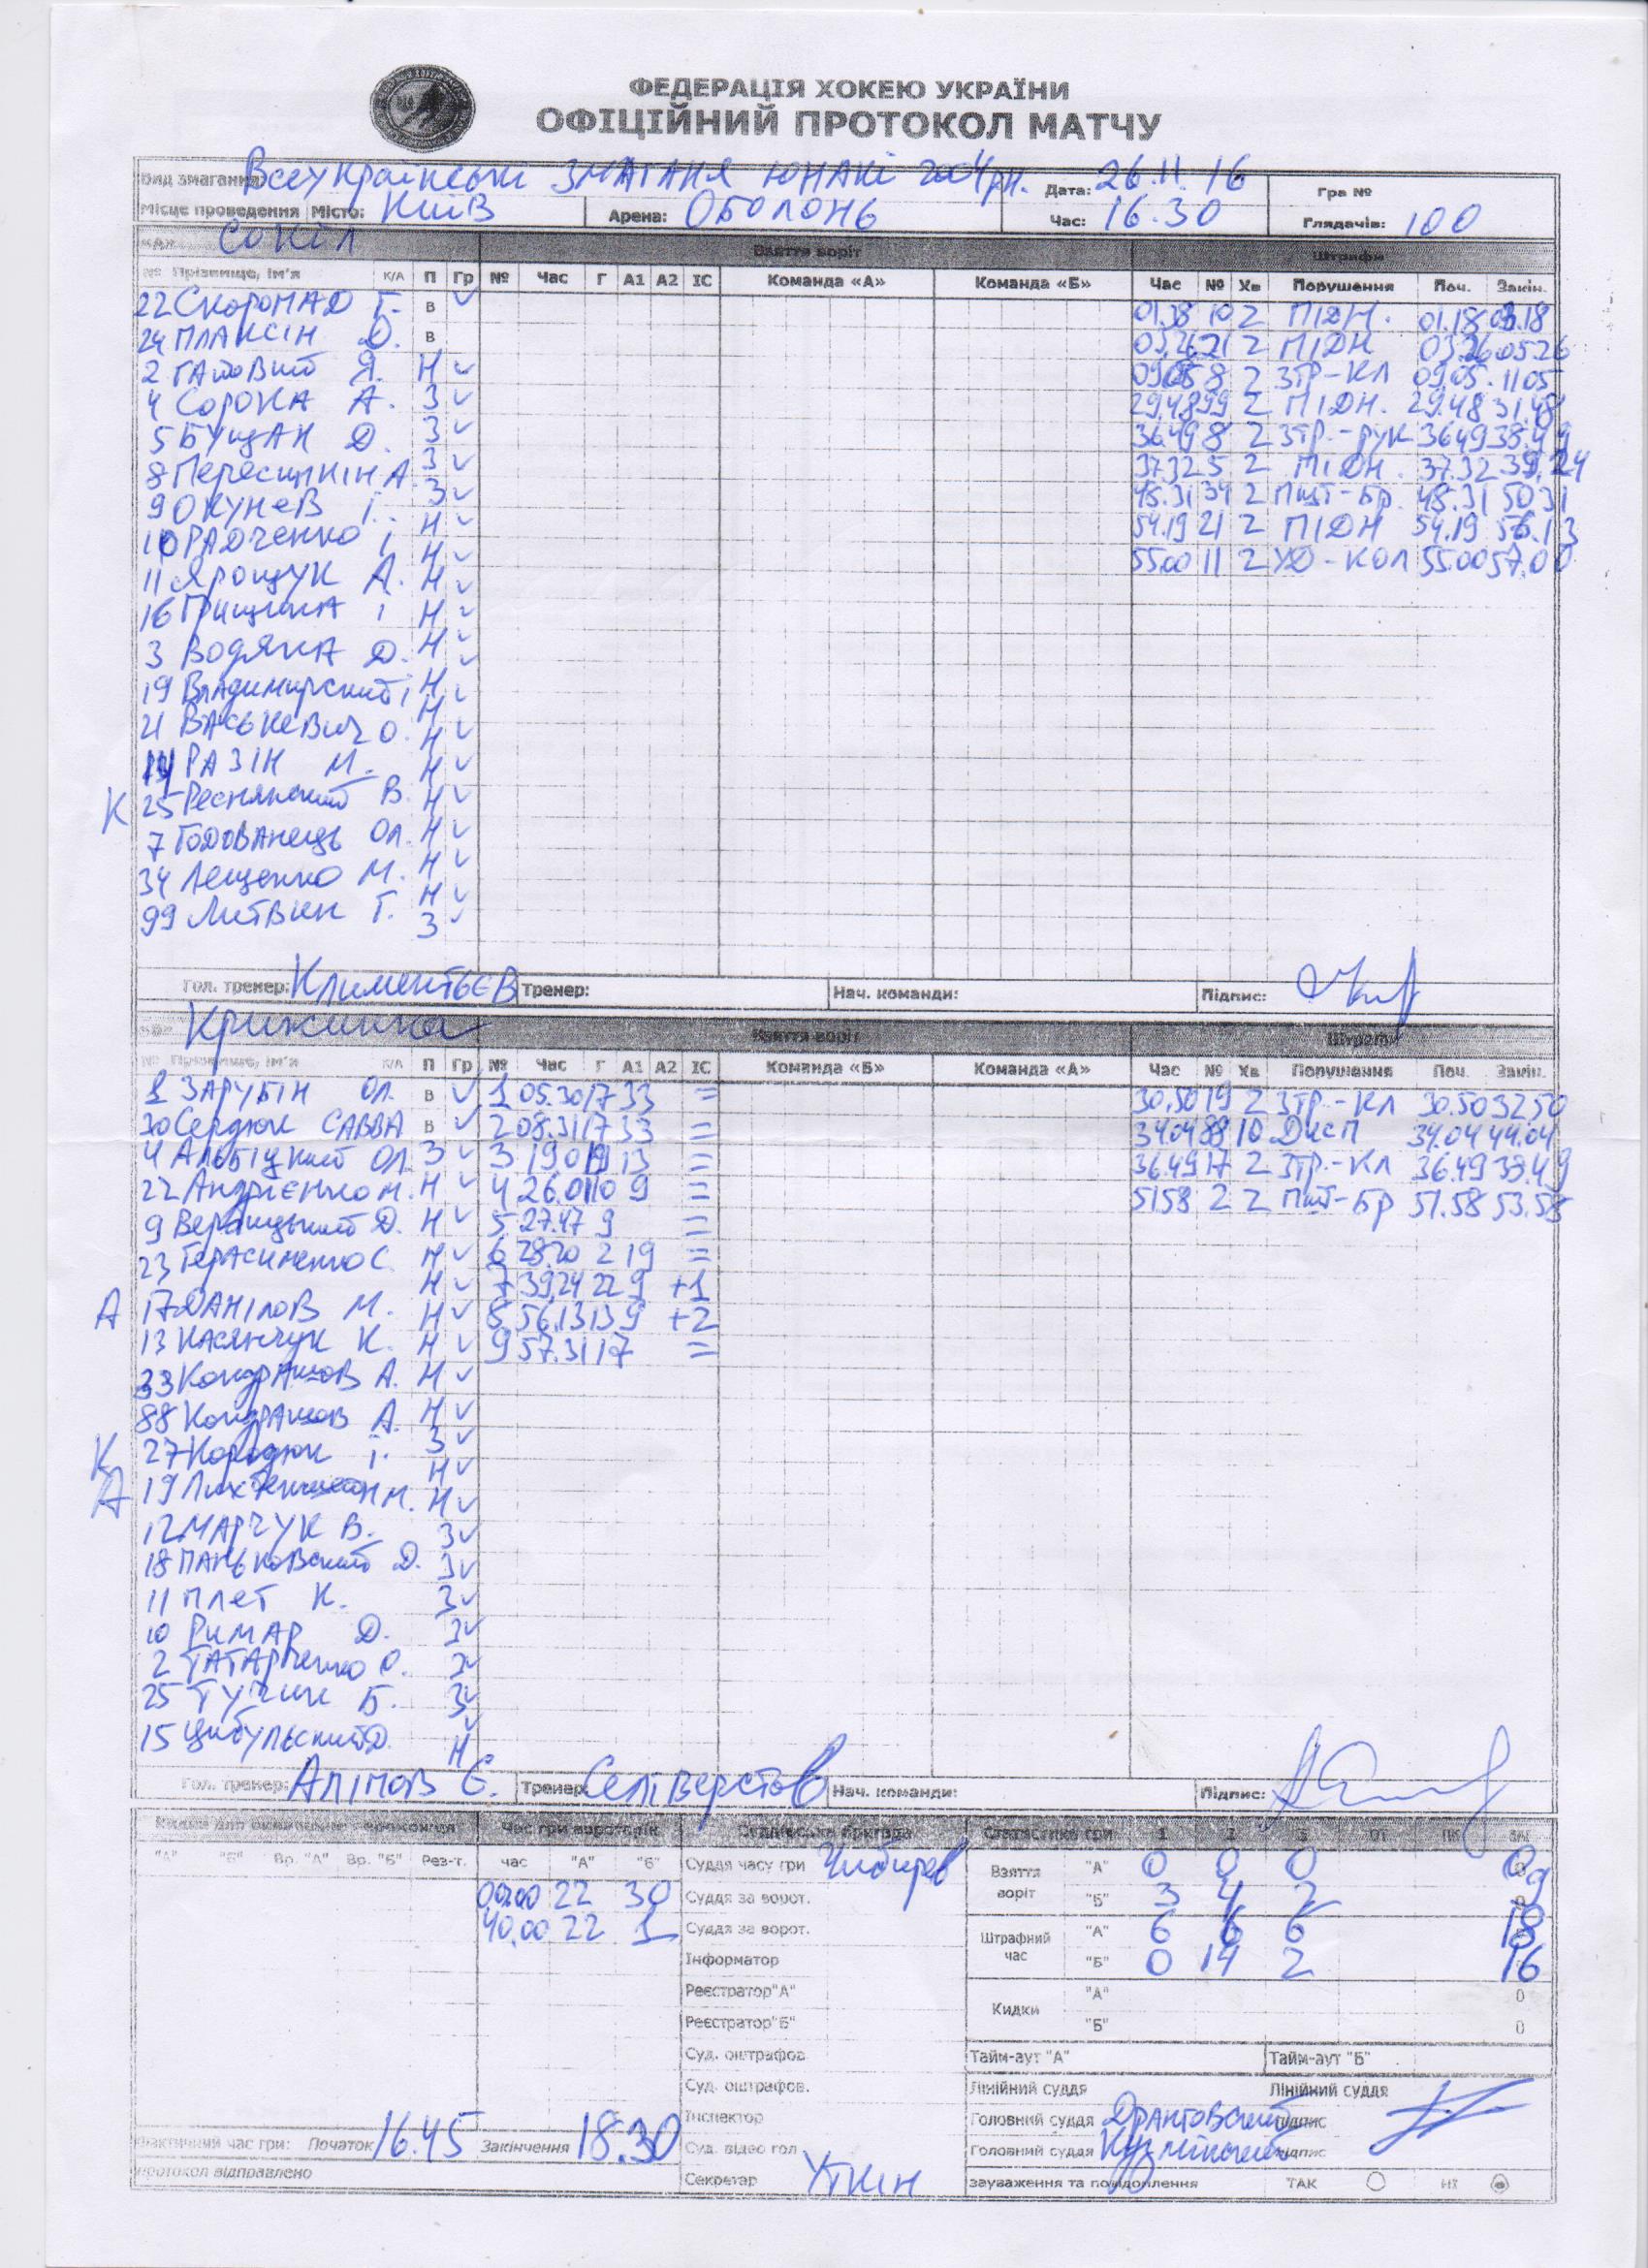 ФЕДЕРАЦІЯ ХОКЕЮ УКРАЇНИ
ОФІЦІЙНИЙ ПРОТОКОЛ МАТЧУ
Вид змагання: Всеукраїнські змагання юнаки 2004 р.н. Дата: 26.11.16 Гра №
Місце проведення Місто: Київ Арена: Оболонь Час: 16.30 Глядачів: 100
«А» Сокіл Взяття воріт Штрафи
№ Прізвище, ім'я К/А П Гр № Час Г А1 А2 ІС Команда «А» Команда «Б» Час № Хв Порушення Поч. Закін.
22 Скоромад Г. в 01.38 10 2 ПІДН. 01.18 03.18
24 Плаксін О. в 03.26 21 2 ПІДН 03.26 05.26
2 Гатовий Я. Н 09.05 8 2 ЗТР-КЛ 09.05 11 05
4 Сорока А. З 29.48 99 2 ПІДН. 29.48 31.48
5 Бущан Д. З 36.49 8 2 ЗТР.-РУК 36.49 38.49
8 Пересипкін А З 37.32 5 2 ПІДН. 37.32 39.24
9 Окунев І. З 48.31 34 2 Пшт-Бр. 48.31 50 31
10 Радченко І Н 54.19 21 2 ПІДН 54.19 56.13
11 Ярощук А. Н 55.00 11 2 УД-КОЛ 55.00 57.00
16 Грищика І Н
3 Водяка Д. Н
19 Владимирский І Н
21 Васькевич О. Н
РАЗІН М. Н
К 25 Реснянский В. Н
7 Годованець Ол. Н
34 Лещенко М. Н
99 Литвин Г. З
Гол. тренер: Климентьєв Тренер: Нач. команди: Підпис:
«Б» Крижинка Взяття воріт Штрафи
№ Прізвище, ім'я К/А П Гр № Час Г А1 А2 ІС Команда «Б» Команда «А» Час № Хв Порушення Поч. Закін.
1 ЗАРУБІН Ол. в 1 05.30 17 33 = 30.50 19 2 ЗТР.-КЛ 30.50 32 50
30 Сердюк САВВА в 2 08.31 17 33 = 34.04 88 10 Дисп 34.04 44.04
4 Альбіцкий Ол З 3 19.01 19 13 = 36.49 17 2 ЗТР.-КЛ 36.49 38.49
22 Андрієнко М. Н 4 26.01 10 9 = 51 58 2 2 Пшт-Бр 51.58 53.58
9 Верзицький Д. Н 5 27.47 9 =
23 Герасименко С. Н 6 28.20 2 19 =
7 39.24 22 9 +1
А 17 ДАНІЛОВ М. Н 8 56.13 13 9 +2
13 Касянчук К. Н 9 57.31 17 =
33 Кондрашов А. Н
88 Кондрашов А. Н
27 Кородюк І. З
К
А 19 Лихтенштейн М. Н
12 МАРЧУК В. З
18 Паньковский Д. З
11 Плет К. З
10 Римар Д. З
2 Татарченко О. З
25 Тучин Б. З
15 Цибульский Д. Н
Гол. тренер: Алімов Є. Тренер: Селіверстов Нач. команди: Підпис:
Час гри воротарів Суддівська бригада Статистика гри 1 2 3 ОТ ПБ ЗАГ
"А" "Б" Вр. "А" Вр. "Б" Рез-т. час "А" "Б" Суддя часу гри Чибирев Взяття воріт "А" 0 0 0 0
00.00 22 30 Суддя за ворот. "Б" 3 4 2 9
40.00 22 1 Суддя за ворот. Штрафний час "А" 6 6 6 18
Інформатор "Б" 0 14 2 16
Реєстратор"А" Кидки "А" 0
Реєстратор"Б" "Б" 0
Суд. оштрафов Тайм-аут "А" Тайм-аут "Б"
Суд. оштрафов. Лінійний суддя Лінійний суддя
Інспектор Головний суддя Драктовский підпис
Фактичний час гри: Початок 16.45 Закінчення 18.30 Суд. відео гол Головний суддя підпис
Протокол відправлено Секретар Уткін Зауваження та повідомлення ТАК НІ